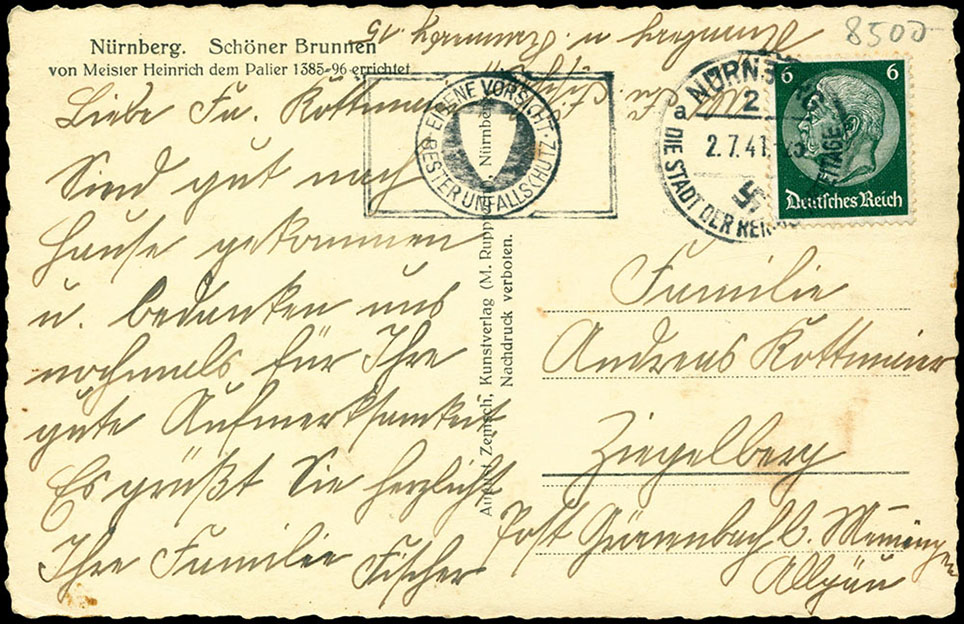 Nürnberg. Schöner Brunnen
von Meister Heinrich dem Palier 1385-96 errichtet
Liebe Fa. Kottmaier
Sind gut nach
Hause gekommen
u. bedanken uns
nochmals für Ihre
gute Aufmerksamkeit.
Es grüßt Sie herzlichst
Ihre Familie Fischer
EIGENE VORSICHT
BESTER UNFALLSCHUTZ
Nürnberg
August Zemsch, Kunstverlag (M. Rupp
Nachdruck verboten.
8500
NÜRNB
2
a
2.7.41
DIE STADT DER REICHSPARTEITAGE
6 6
Deutsches Reich
Familie
Andreas Kottmaier
Ziegelberg
Post Grönenbach b. Memmingen
Allgäu